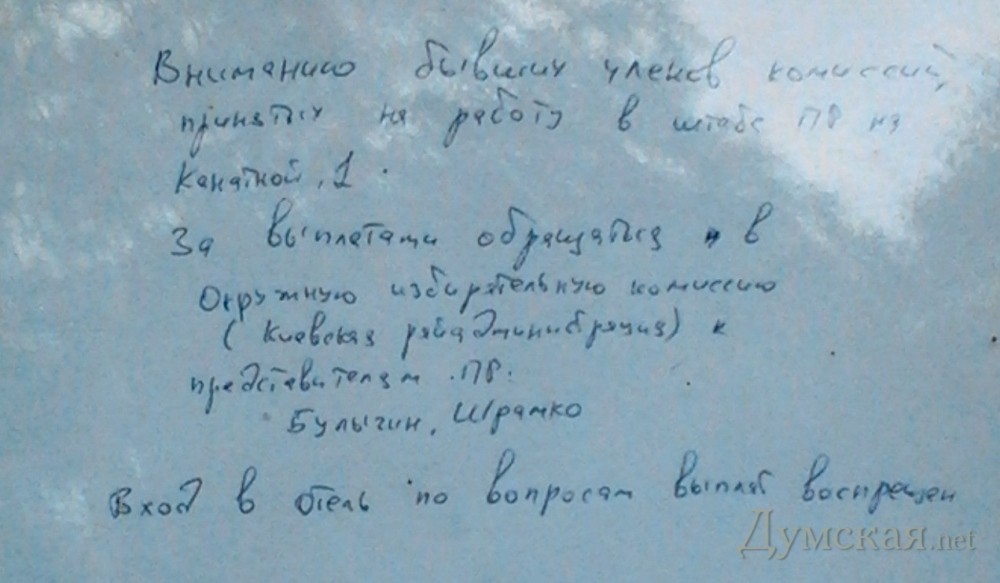 Вниманию бывших членов комиссий,
принятых на работу в штабе ПР на
Канатной, 1.
За выплатами обращаться в
Окружную избирательную комиссию
(Киевская райадминистрация) к
представителям ПР.
Булыгин, Шрамко
Вход в отель по вопросам выплат воспрещен
Думская.net